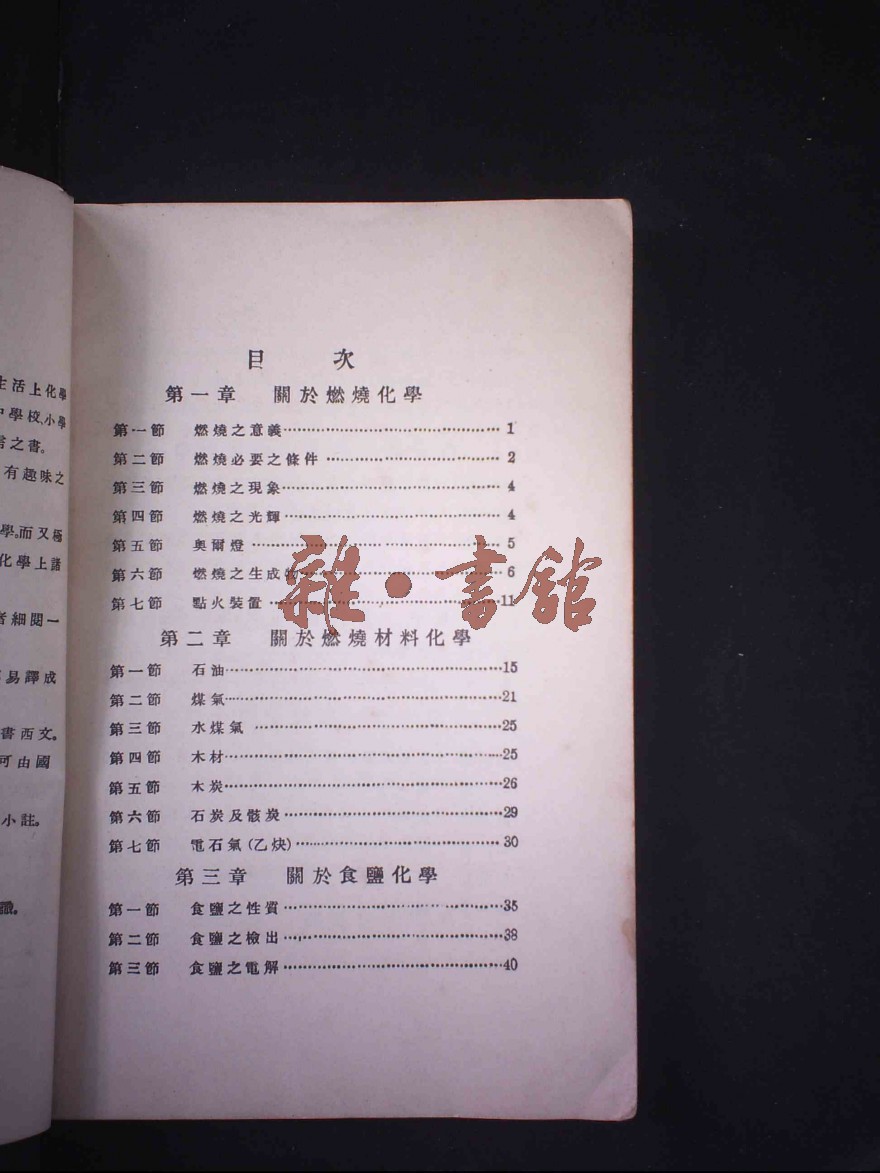 目 次
第一章 關於燃燒化學
第一節 燃燒之意義 1
第二節 燃燒必要之條件 2
第三節 燃燒之現象 4
第四節 燃燒之光輝 4
第五節 奥爾燈 5
第六節 燃燒之生成物 6
第七節 點火裝置 11
第二章 關於燃燒材料化學
第一節 石油 15
第二節 煤氣 21
第三節 水煤氣 25
第四節 木材 25
第五節 木炭 26
第六節 石炭及骸炭 29
第七節 電石氣(乙炔) 30
第三章 關於食鹽化學
第一節 食鹽之性質 35
第二節 食鹽之檢出 38
第三節 食鹽之電解 40
雜·書館
生活上化學
中學校、小學
之書。
有趣味之
學。而又極
化學上諸
者細閱一
易譯成
書西文。
可由國
小註。
識。